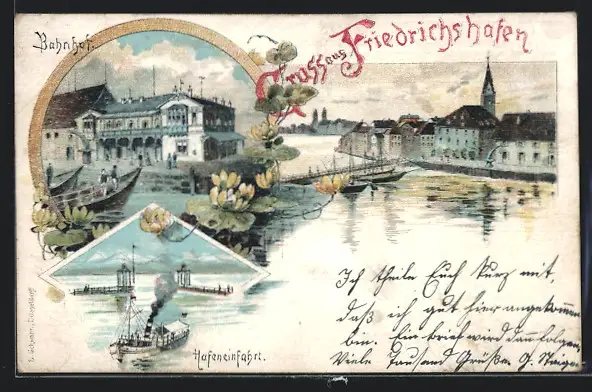 Bahnhof.
Gruss aus Friedrichshafen
Hafeneinfahrt.
Ich theile Euch kurz mit,
daß ich gut hier angekommen
bin. Ein brief wird dann folgen.
Viele Tausend Grüße G.